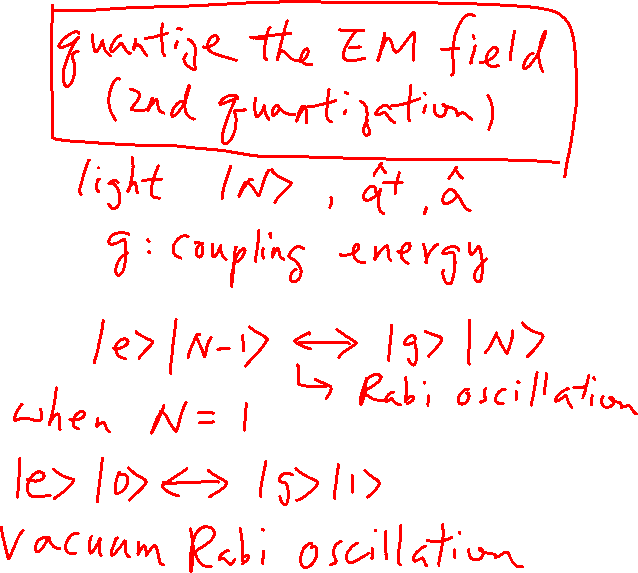 quantize the EM field
(2nd quantization)
light |N>, â†, â
g: coupling energy
|e>|N-1> ↔ |g>|N>
↳ Rabi oscillation
when N = 1
|e>|0> ↔ |g>|1>
Vacuum Rabi oscillation